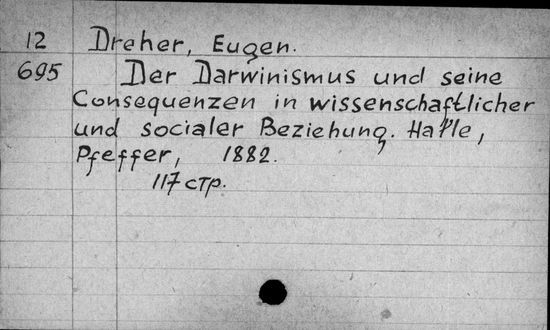 12 Dreher, Eugen.
695 Der Darwinismus und seine
Consequenzen in wissenschaftlicher
und socialer Beziehung. Halle,
Pfeffer, 1882.
117 стр.